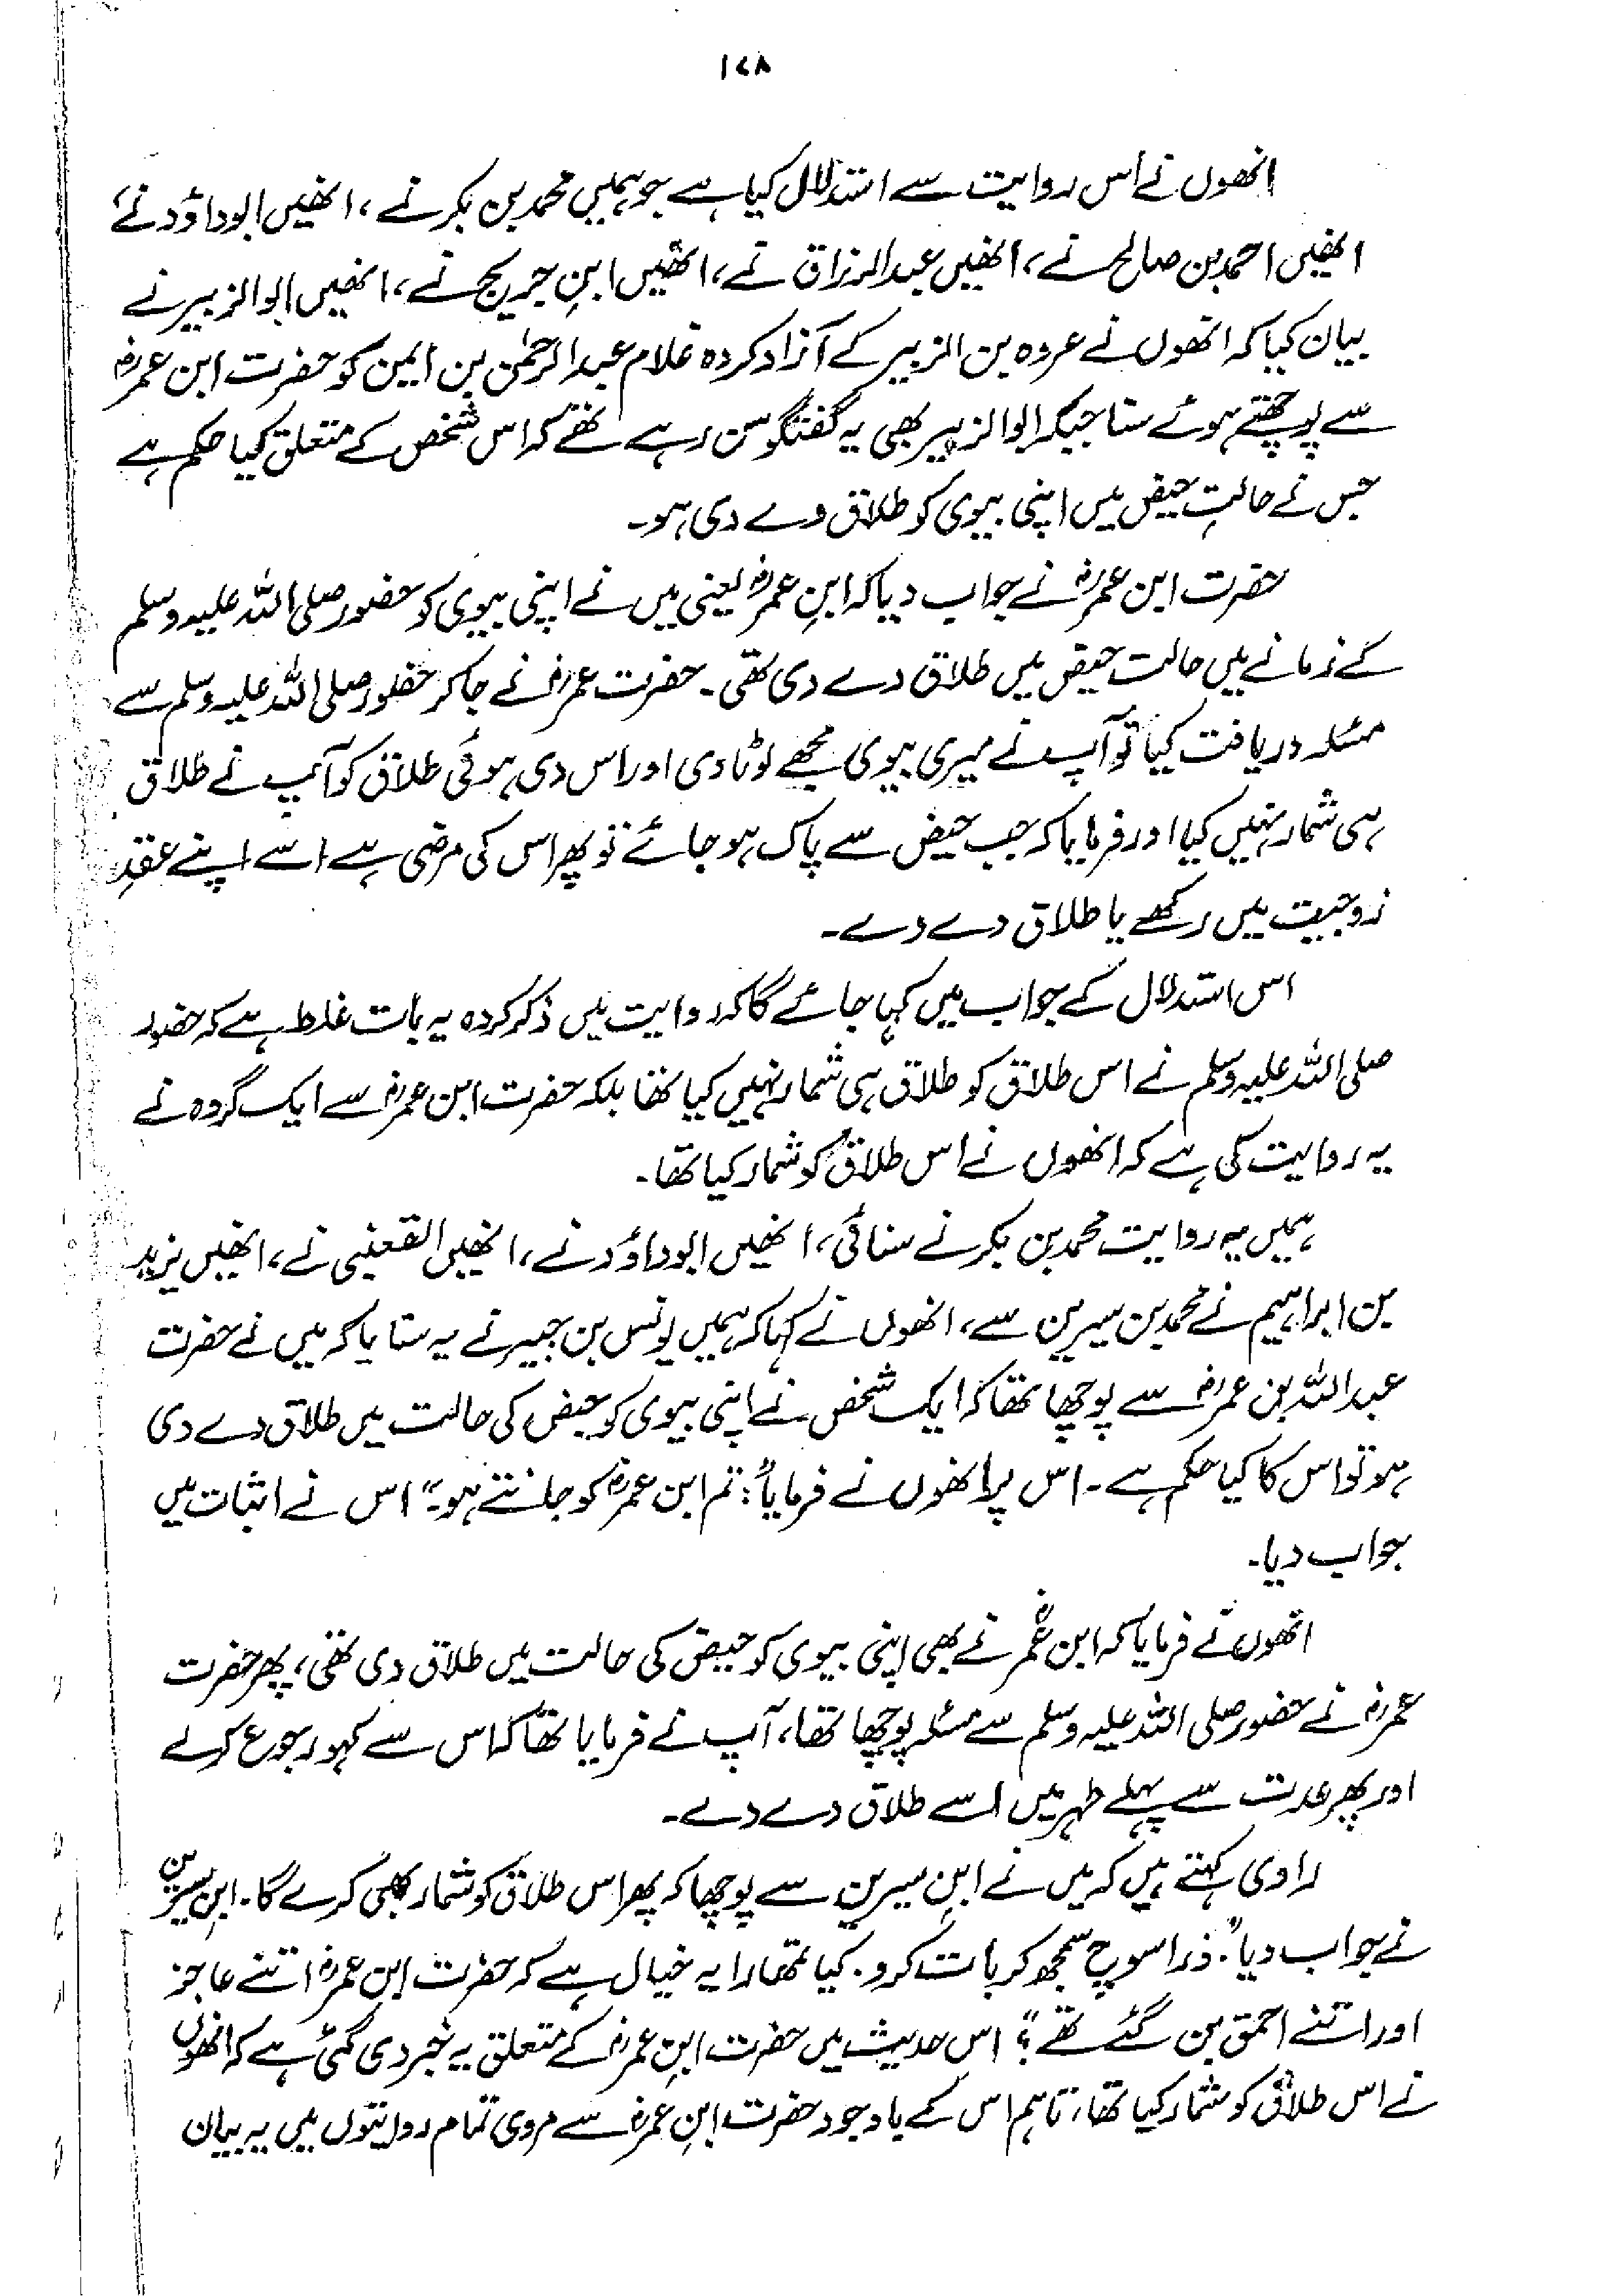 ۱۷۸
انھوں نے اس روایت سے استدلال کیا ہے جو ہمیں محمد بن بکر نے، انھیں ابوداؤد نے
انھیں احمد بن صالح نے، انھیں عبدالرزاق نے، انھیں ابنِ جریج نے، انھیں ابوالزبیر نے
بیان کیا کہ انھوں نے عروہ بن الزبیر کے آزاد کردہ غلام عبدالرحمٰن بن ایمن کو حضرت ابن عمرؓ
سے پوچھتے ہوئے سنا جبکہ ابوالزبیر بھی یہ گفتگو سن رہے تھے کہ اس شخص کے متعلق کیا حکم ہے
جس نے حالتِ حیض میں اپنی بیوی کو طلاق دے دی ہو۔
حضرت ابن عمرؓ نے جواب دیا کہ ابنِ عمرؓ یعنی میں نے اپنی بیوی کو حضور صلی اللہ علیہ وسلم
کے زمانے میں حالت حیض میں طلاق دے دی تھی۔ حضرت عمرؓ نے جا کر حضور صلی اللہ علیہ وسلم سے
مسئلہ دریافت کیا تو آپ نے میری بیوی مجھے لوٹا دی اور اس دی ہوئی طلاق کو آپ نے طلاق
ہی شمار نہیں کیا اور فرمایا کہ جب حیض سے پاک ہو جائے تو پھر اس کی مرضی ہے اسے اپنے عقدِ
زوجیت میں رکھے یا طلاق دے دے۔
اس استدلال کے جواب میں کہا جائے گا کہ روایت میں ذکر کردہ یہ بات غلط ہے کہ حضور
صلی اللہ علیہ وسلم نے اس طلاق کو طلاق ہی شمار نہیں کیا تھا بلکہ حضرت ابن عمرؓ سے ایک گروہ نے
یہ روایت کی ہے کہ انھوں نے اس طلاق کو شمار کیا تھا۔
ہمیں یہ روایت محمد بن بکر نے سنائی، انھیں ابوداؤد نے، انھیں القعنبی نے، انھیں یزید
بن ابراہیم نے محمد بن سیرین سے، انھوں نے کہا کہ ہمیں یونس بن جبیر نے یہ سنایا کہ میں نے حضرت
عبداللہ بن عمرؓ سے پوچھا تھا کہ ایک شخص نے اپنی بیوی کو حیض کی حالت میں طلاق دے دی
ہو تو اس کا کیا حکم ہے۔ اس پر انھوں نے فرمایا: "تم ابن عمرؓ کو جانتے ہو۔" اس نے اثبات میں
جواب دیا۔
انھوں نے فرمایا کہ ابن عمرؓ نے بھی اپنی بیوی کو حیض کی حالت میں طلاق دی تھی، پھر حضرت
عمرؓ نے حضور صلی اللہ علیہ وسلم سے مسئلہ پوچھا تھا، آپ نے فرمایا تھا کہ اس سے کہو رجوع کرلے
اور پھر عدت سے پہلے طہر میں اسے طلاق دے دے۔
راوی کہتے ہیں کہ میں نے ابنِ سیرین سے پوچھا کہ پھر اس طلاق کو شمار بھی کرے گا۔ ابنِ سیرین
نے جواب دیا: "ذرا سوچ سمجھ کر بات کرو۔ کیا تمھارا یہ خیال ہے کہ حضرت ابن عمرؓ اتنے عاجز
اور اتنے احمق بن گئے تھے؟" اس حدیث میں حضرت ابنِ عمرؓ کے متعلق یہ خبر دی گئی ہے کہ انھوں
نے اس طلاق کو شمار کیا تھا، تاہم اس کے باوجود حضرت ابنِ عمرؓ سے مروی تمام روایتوں میں یہ بیان